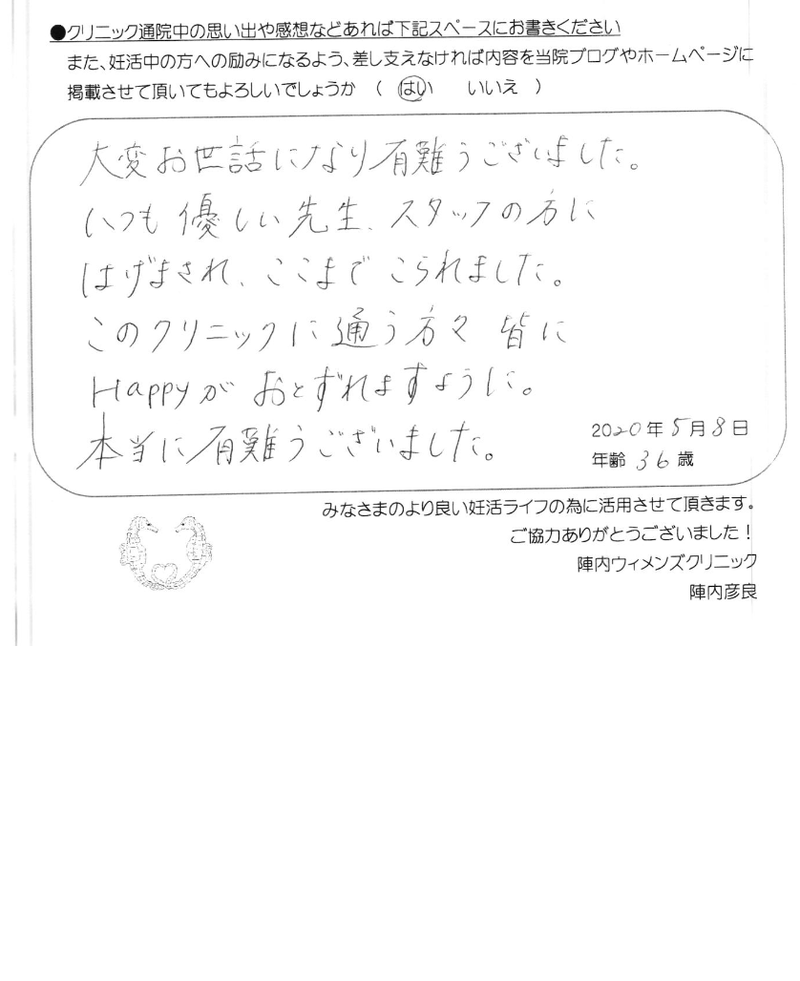 ●クリニック通院中の思い出や感想などあれば下記スペースにお書きください
また、妊活中の方への励みになるよう、差し支えなければ内容を当院ブログやホームページに
掲載させて頂いてもよろしいでしょうか ( はい いいえ )
大変お世話になり有難うございました。
いつも優しい先生、スタッフの方に
はげまされ、ここまでこられました。
このクリニックに通う方々 皆に
Happyが おとずれますように。
本当に有難うございました。
2020年5月8日
年齢 36 歳
みなさまのより良い妊活ライフの為に活用させて頂きます。
ご協力ありがとうございました！
陣内ウィメンズクリニック
陣内彦良